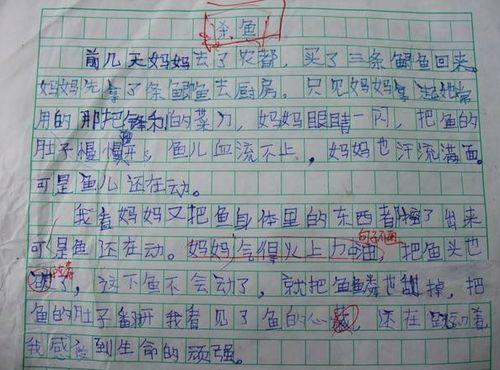 杀鱼
前几天妈妈去了农都,买了三条鲫鱼回来。
妈妈先拿了条鲫鱼去厨房。只见妈妈拿起她常
用的那把锋利的菜刀,妈妈眼睛一闪,把鱼的
肚子慢慢,鱼儿血流不止,妈妈也汗流满面。
可是鱼儿还在动。
我看妈妈又把鱼身体里的东西都掏了出来
可是鱼还在动。妈妈气得火上力,把鱼头也
句子不通
了,这下鱼不会动了,就把鱼鳞也刮掉,把
鱼的肚子翻开我看见了鱼的心,还在跳动着,
我感受到生命的顽强。